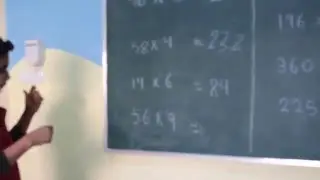 58 x 4 = 232
14 x 6 = 84
56 x 9 =
196
360
225